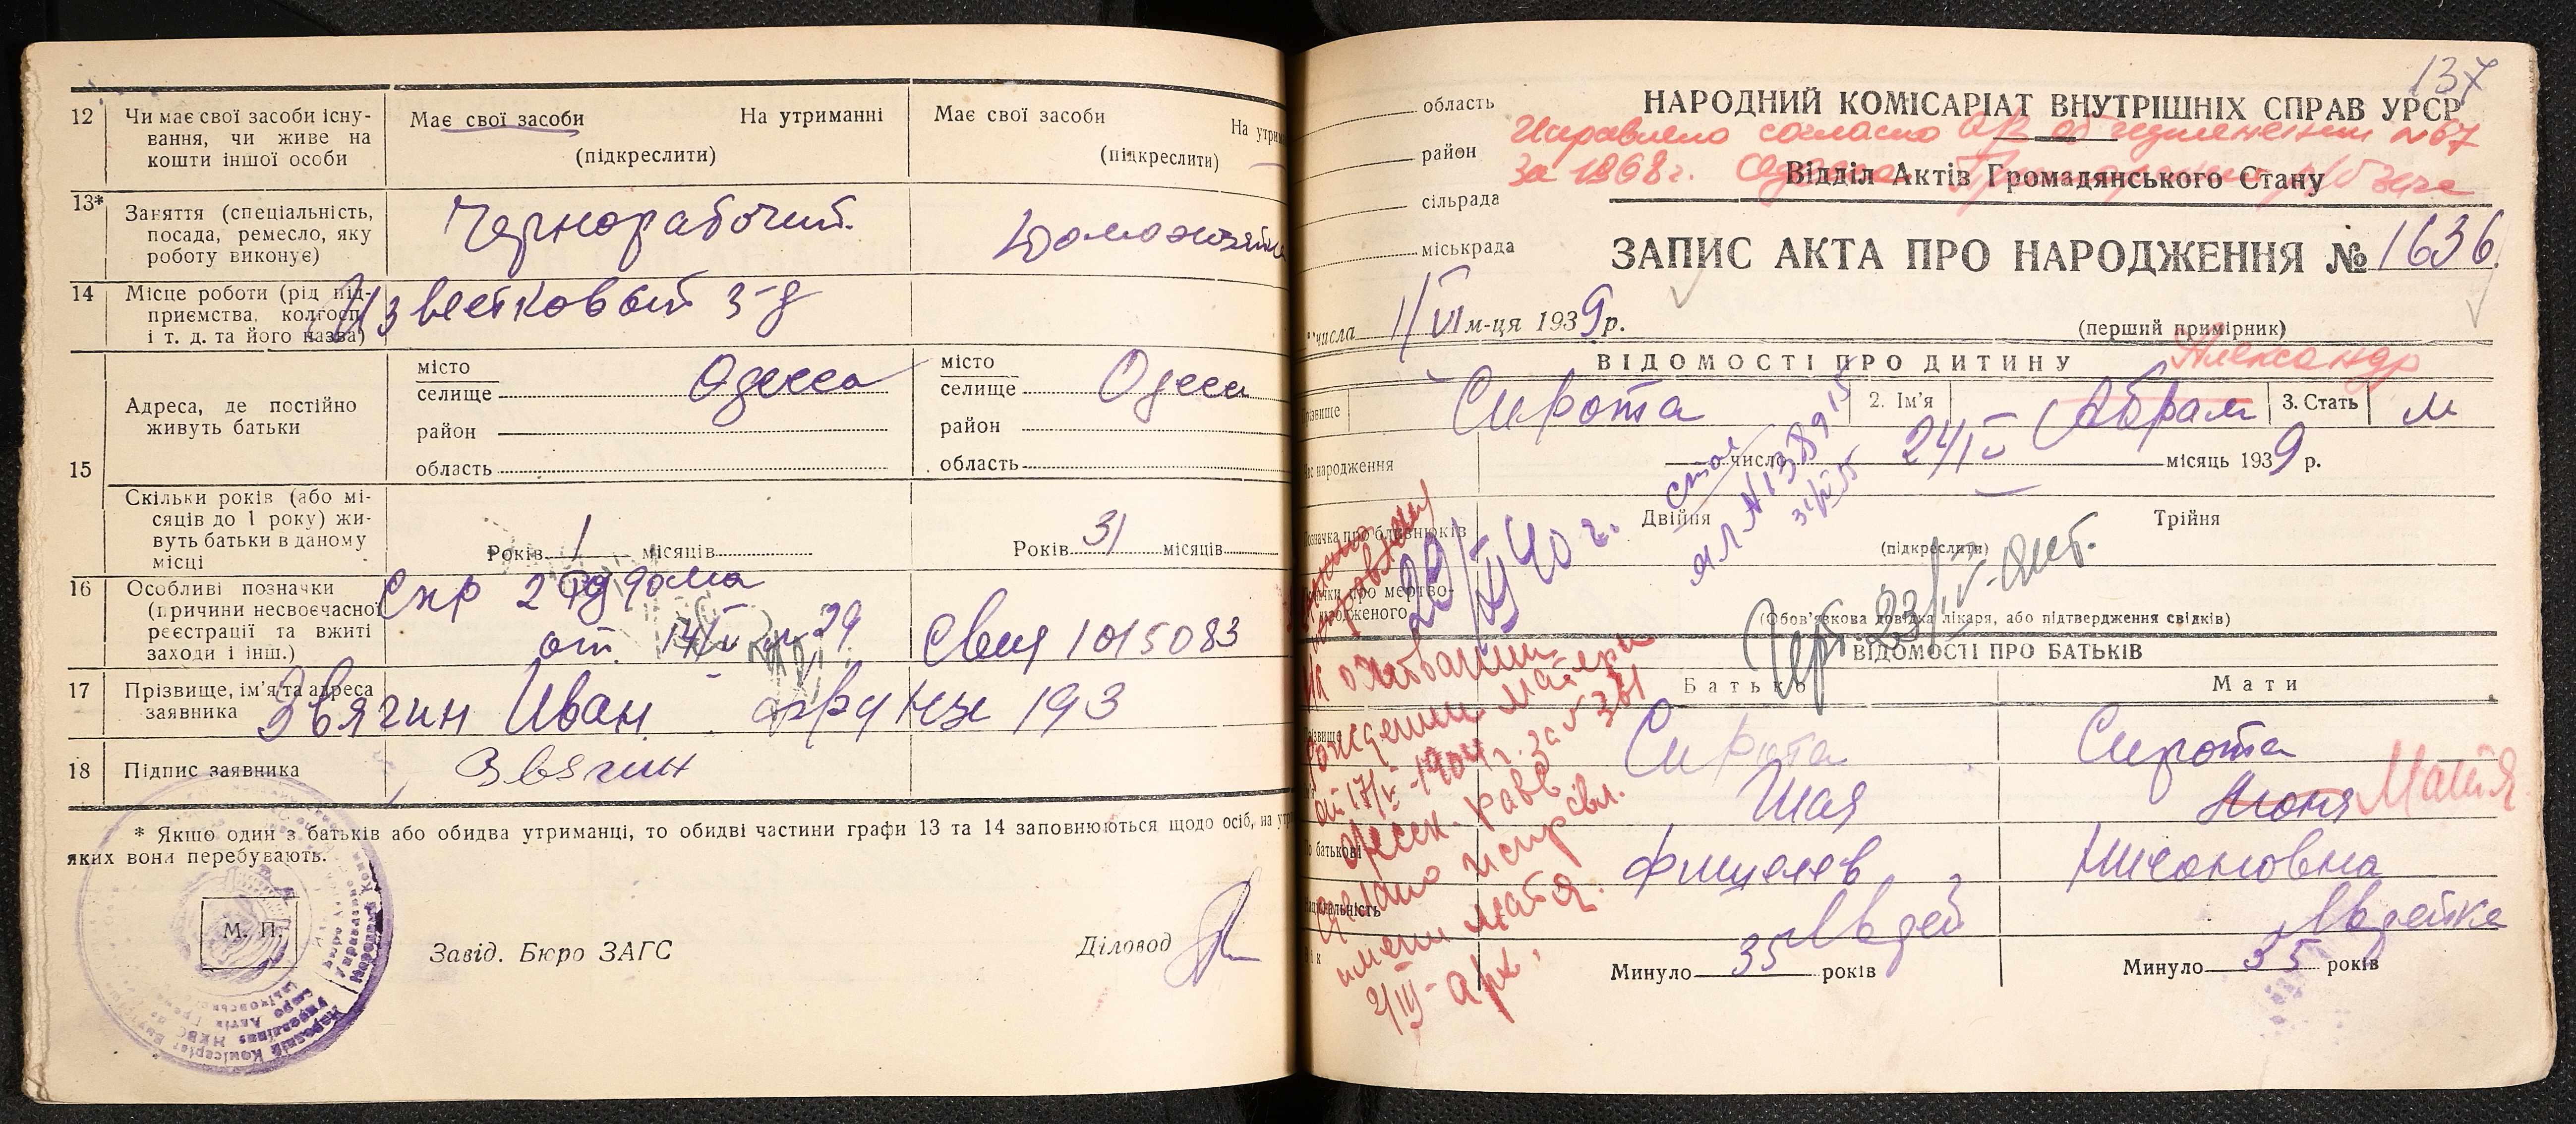 12
Чи має свої засоби існу-
вання, чи живе на
кошти іншої особи
Має свої засоби
На утриманні
(підкреслити)
Має свої засоби
На утрим
(підкреслити)
13*
Заняття (спеціальність,
посада, ремесло, яку
роботу виконує)
Чернорабочий
Домохозяйка
14
Місце роботи (рід під-
приємства, колгосп
і т. д. та його назва)
Известковый з-д
15
Адреса, де постійно
живуть батьки
місто
селище Одесса
район
область
місто
селище Одесса
район
область
Скільки років (або мі-
сяців до 1 року) жи-
вуть батьки в даному
місці
Років 1 місяців
Років 31 місяців
16
Особливі позначки
(причини несвоєчасної
реєстрації та вжиті
заходи і інш.)
Спр 2 роддома
от 14/
Свид 1015083
17
Прізвище, ім'я та адреса
заявника
Звягин Иван Фрунзе 193
18
Підпис заявника
Звягин
* Якщо один з батьків або обидва утриманці, то обидві частини графи 13 та 14 заповнюються щодо осіб, на утр
яких вони перебувають.
М. П.
Завід. Бюро ЗАГС
Діловод
137
область
район
сільрада
міськрада
НАРОДНИЙ КОМІСАРІАТ ВНУТРІШНІХ СПРАВ УРСР
Исправлено согласно а/з об изменении №67
за 1968г.
Відділ Актів Громадянського Стану
ЗАПИС АКТА ПРО НАРОДЖЕННЯ № 1636
числа 1/VI м-ця 1939 р.
(перший примірник)
ВІДОМОСТІ ПРО ДИТИНУ
Александр
різвище
Сирота
2. Ім'я
Абрам
3. Стать
м
ас народження
число 24/V місяць 1939 р.
означка про близнюків
Двійня
Трійня
(підкреслити)
29/XII 40 г.
ачки про мертво-
народженого
(Обов'язкова довідка лікаря, або підтвердження свідків)
ВІДОМОСТІ ПРО БАТЬКІВ
Батько
Мати
різвище
Сирота
Сирота
Шая
Нюня Матя
о батькові
Фишелев
Нисоновна
аціональність
Иудей
Иудейка
ік
Минуло 35 років
Минуло 35 років
рождении матери
от 17/V-1904 г. за № 361
Одесск. равв.
имени Матя.
2/III